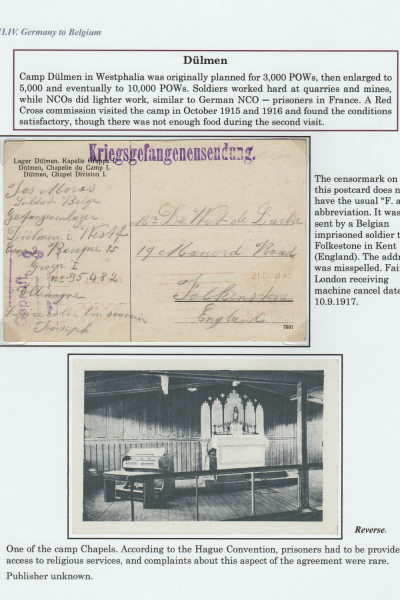 II.IV. Germany to Belgium
Dülmen
Camp Dülmen in Westphalia was originally planned for 3,000 POWs, then enlarged to
5,000 and eventually to 10,000 POWs. Soldiers worked hard at quarries and mines,
while NCOs did lighter work, similar to German NCO — prisoners in France. A Red
Cross commission visited the camp in October 1915 and 1916 and found the conditions
satisfactory, though there was not enough food during the second visit.
Kriegsgefangenensendung.
Lager Dülmen. Kapelle Gruppe
Dülmen, Chapelle du Camp I.
Dülmen, Chapel Division I.
Jos Moras
Soldat Belge
Gefangenenlager
Dülmen i Westf
Baraque 15
Groupe I
no 35482
Allemagne
souvenir
Joseph
Geprüft
De Wet de
19 Manord Road
Folkinston
England
7691
The censormark on
this postcard does n
have the usual "F. a
abbreviation. It was
sent by a Belgian
imprisoned soldier t
Folkestone in Kent
(England). The addr
was misspelled. Fai
London receiving
machine cancel date
10.9.1917.
Reverse.
One of the camp Chapels. According to the Hague Convention, prisoners had to be provide
access to religious services, and complaints about this aspect of the agreement were rare.
Publisher unknown.